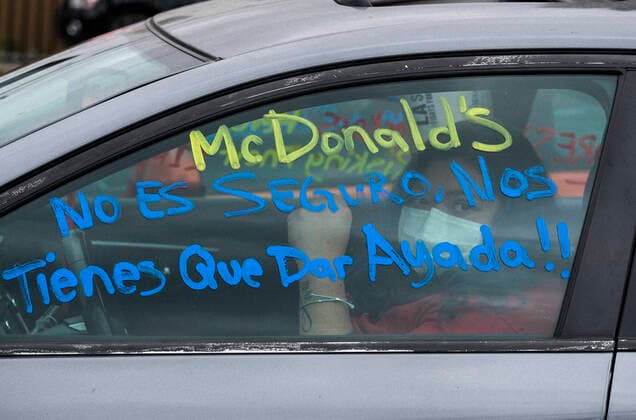 McDonald's
No ES SEGURO, Nos
Tienes Que Dar Ayada!!